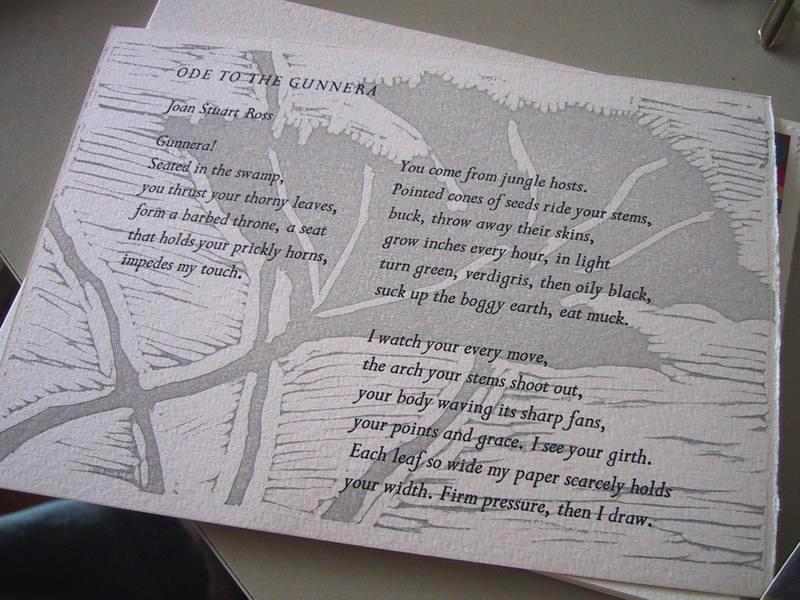 ODE TO THE GUNNERA
Joan Stuart Ross
Gunnera!
Seated in the swamp,
you thrust your thorny leaves,
form a barbed throne, a seat
that holds your prickly horns,
impedes my touch.
You come from jungle hosts.
Pointed cones of seeds ride your stems,
buck, throw away their skins,
grow inches every hour, in light
turn green, verdigris, then oily black,
suck up the boggy earth, eat muck.
I watch your every move,
the arch your stems shoot out,
your body waving its sharp fans,
your points and grace. I see your girth.
Each leaf so wide my paper scarcely holds
your width. Firm pressure, then I draw.